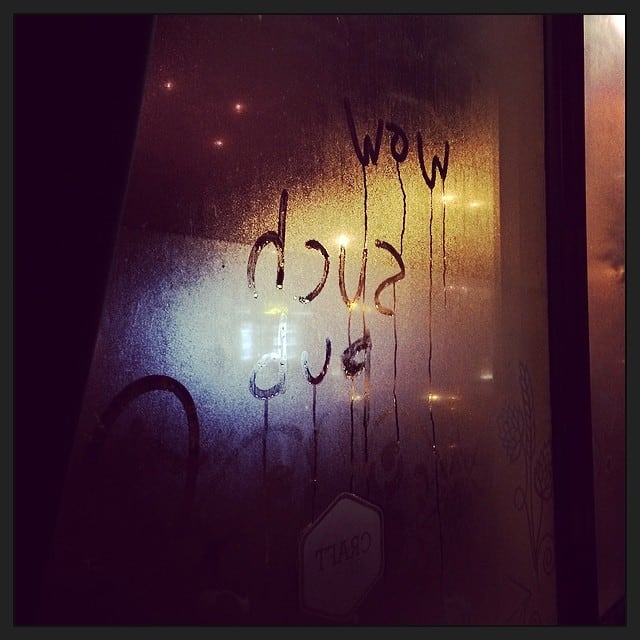 wow
such
pub
CRAFT